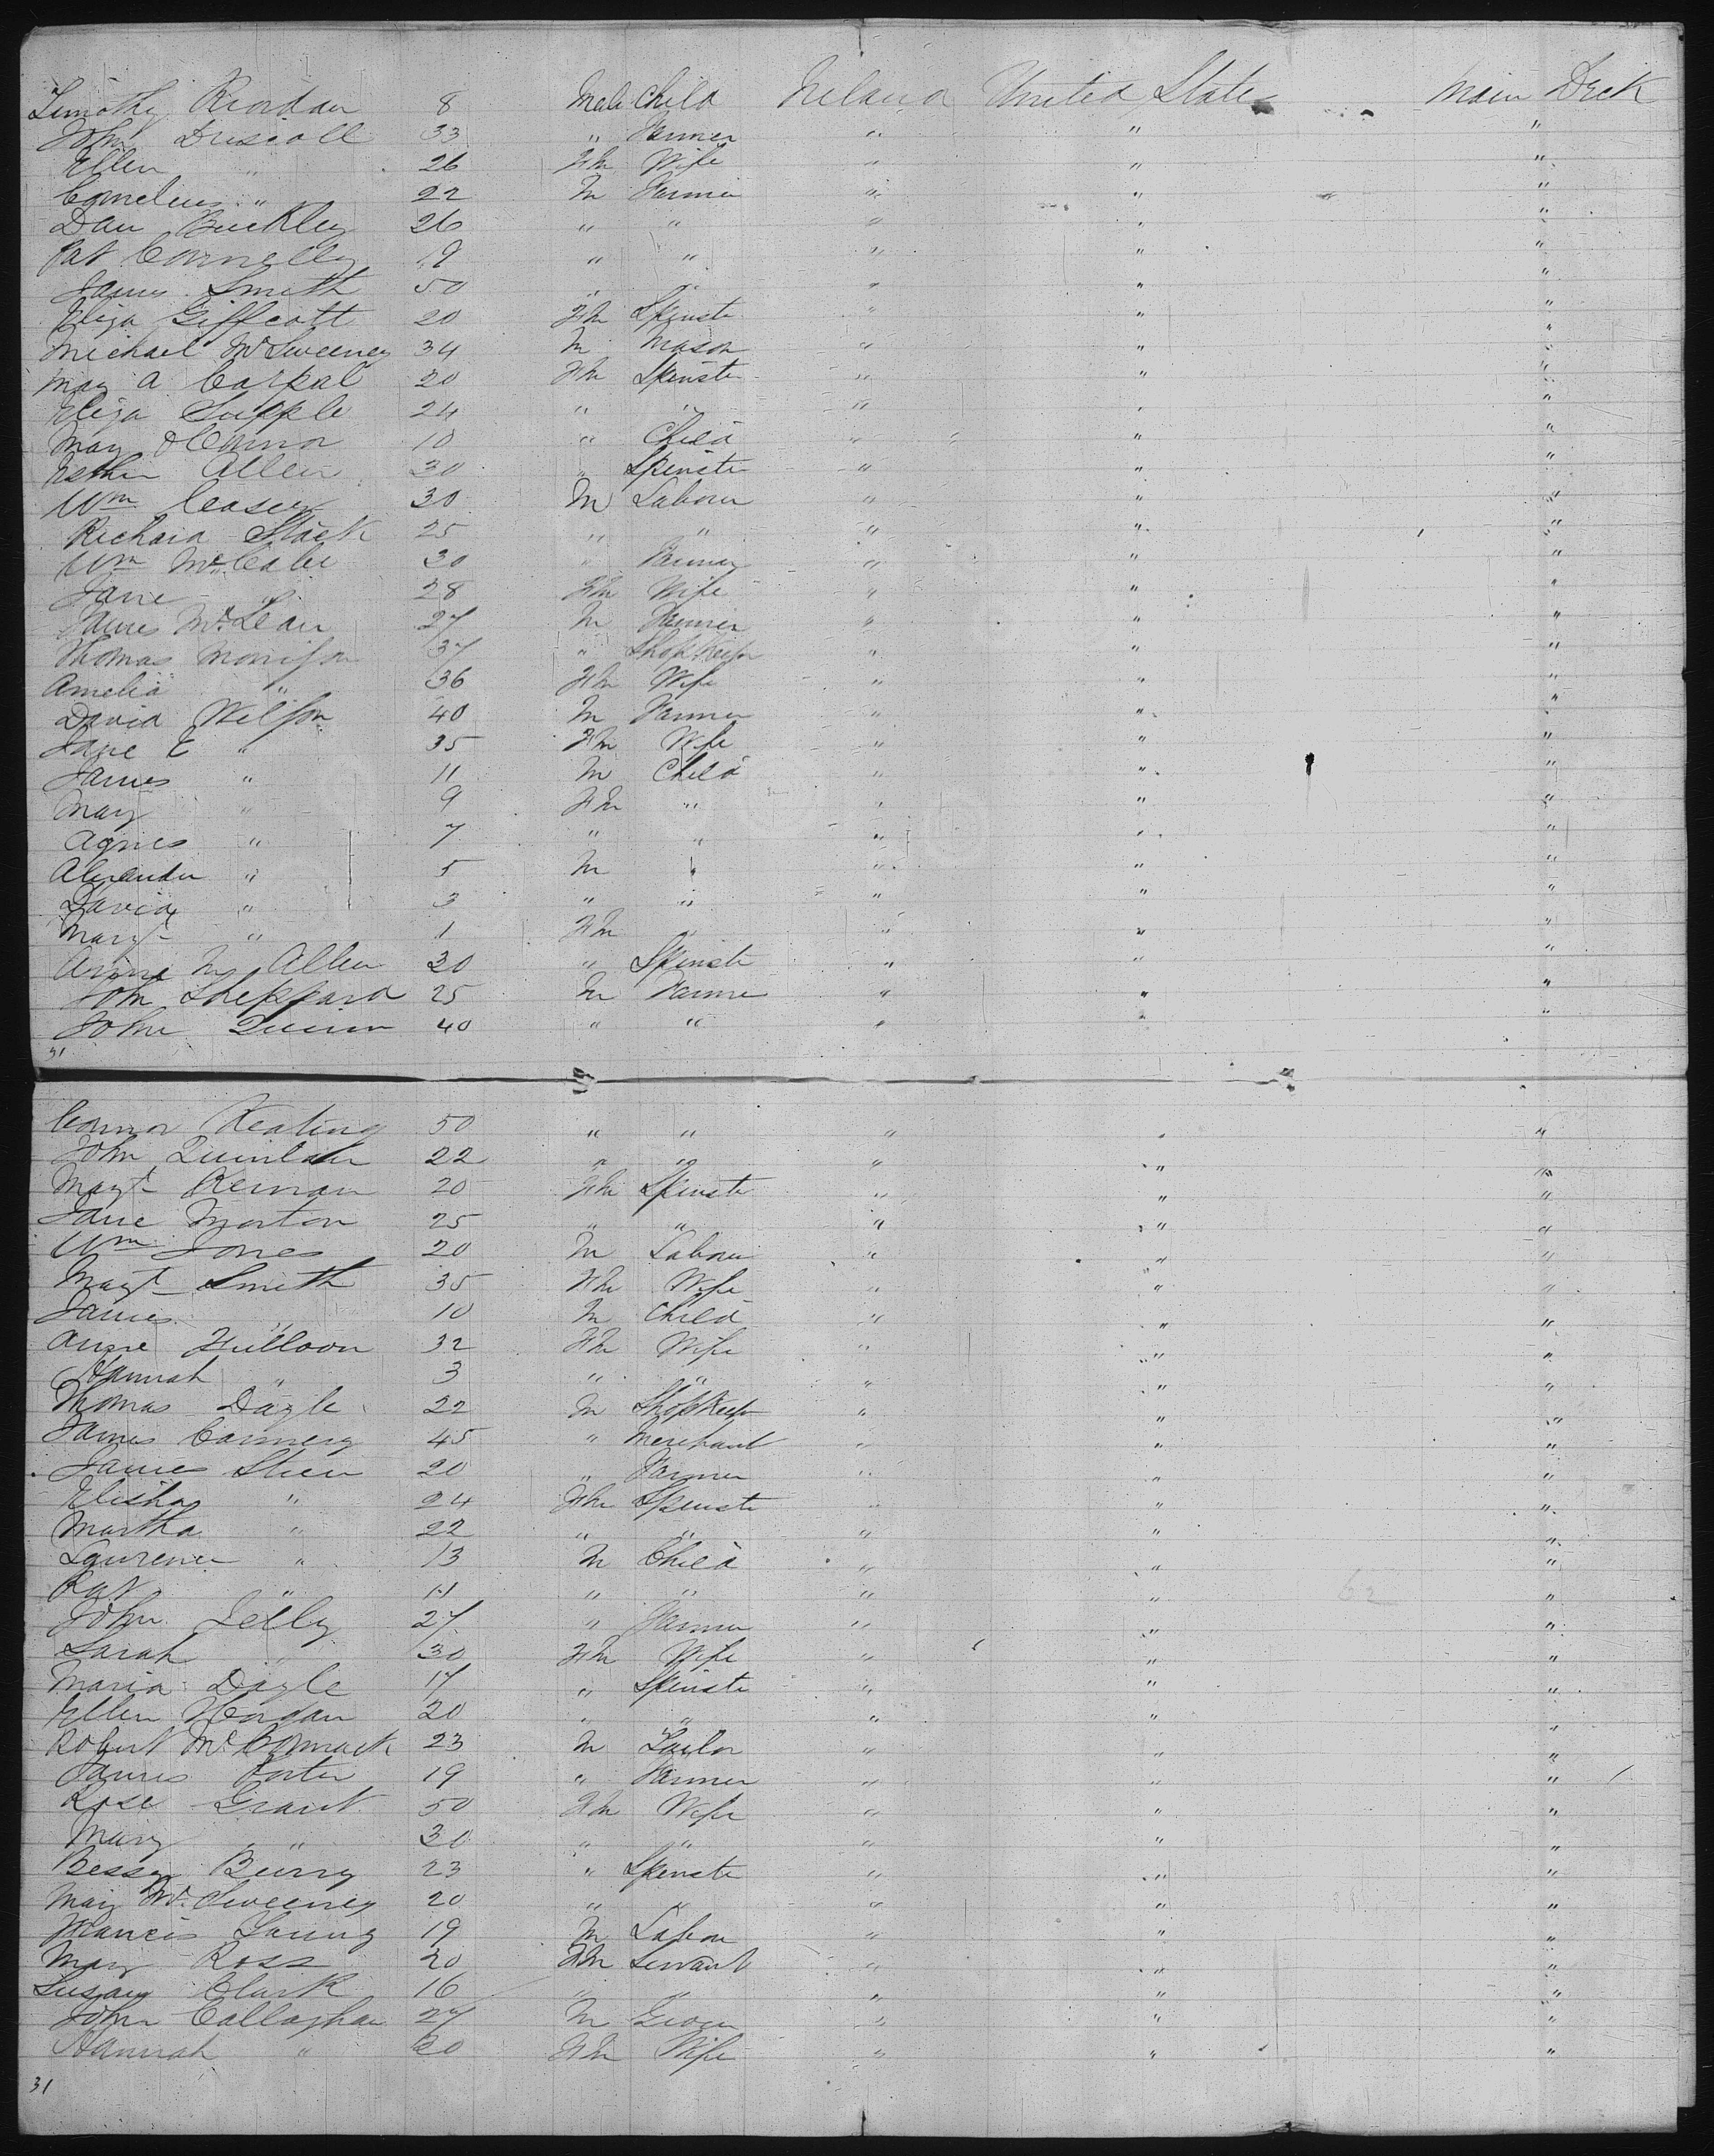 Timothy Riordan 8 Male Child Ireland United States Main Deck
John Driscoll 33 " Farmer " " "
Ellen " 26 Fm Wife " " "
Cornelius " 22 M Farmer " " "
Dan Buckley 26 " " " " "
Pat Connelly 19 " " " " "
James Smith 50 " " " " "
Eliza Giffcott 20 Fm Spinste " " "
Michael McSweeney 34 M Mason " " "
Mary A 20 Fm Spinste " " "
Eliza Supple 24 " " " " "
Mary OConnor 10 " Child " " "
Esther Allen 30 " Spinste " " "
Wm Casey 30 M Labour " " "
Richard Stack 25 " " " " "
Wm McCabe 30 " Farmer " " "
Jane " 28 Fm Wife " " "
James McLean 27 M Farmer " " "
Thomas Morrison 37 " Shop Keepr " " "
Amelia " 36 Fm Wife " " "
David Wilson 40 M Farmer " " "
Jane E " 35 Fm Wife " " "
James " 11 M Child " " "
Mary " 9 Fm " " " "
Agnes " 7 " " " " "
Alexander " 5 M " " " "
David " 3 " " " " "
Margt " 1 Fm " " " "
Anna M Allen 30 " Spinste " " "
John Sheppard 25 M Farme " " "
John Quinn 40 " " " " "
31
Connor Keating 50 " " " " "
John Quinlan 22 " " " " "
Margt Kernan 20 Fm Spinste " " "
Jane Morton 25 " " " " "
Wm Jones 20 M Labour " " "
Margt Smith 35 Fm Wife " " "
James " 10 M Child " " "
Anne 32 Fm Wife " " "
Hannah " 3 " " " " "
Thomas Doyle 22 M Shopkeep " " "
James Carmery 45 " Merchant " " "
James Shea 20 " Farmer " " "
Elisha " 24 Fm Spinste " " "
Martha " 22 " " " " "
Lawrence " 13 M Child " " "
Pat " 11 " " " " "
John Jelly 27 " Farmer " " "
Sarah " 30 Fm Wife " " "
Maria Doyle 17 " Spinste " " "
Ellen Horgan 20 " " " " "
Robert McCormack 23 M Tailor " " "
James Porter 19 " Farmer " " "
Rose Grant 50 Fm Wife " " "
Mary " 30 " " " " "
Bessy Burry 23 " Spinste " " "
Mary McSweeney 20 " " " " "
Francis 19 M Labou " " "
Mary Ross 20 Fm Servant " " "
Susan Clark 16 " " " " "
John Callaghan 27 M Grocer " " "
Hannah " 20 Fm Wife " " "
31